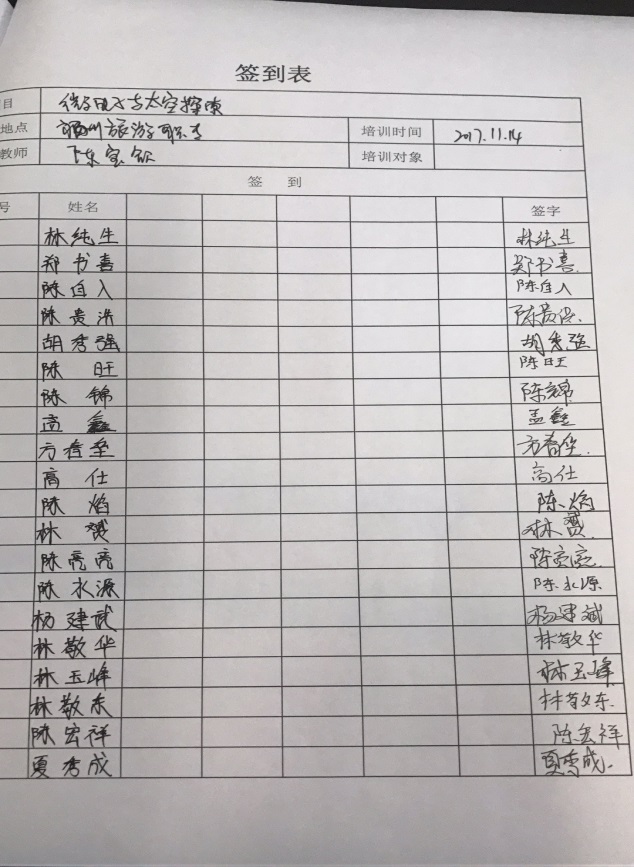 签到表
目 微电子与太空探索
地点 旅游职专 培训时间 2017.11.14
教师 陈宝 培训对象
签 到
号 姓名 签字
林纯生 林纯生
郑书喜 郑书喜
陈自入 陈自入
陈贵洪 陈贵洪
胡秀强 胡秀强
陈 旺 陈旺
陈 锦 陈锦
孟 鑫 孟鑫
方春华 方春华
高 仕 高仕
陈 焰 陈焰
林 赟 林赟
陈亮亮 陈亮亮
陈水源 陈水源
杨建斌 杨建斌
林敬华 林敬华
林玉峰 林玉峰
林敬东 林敬东
陈宏祥 陈宏祥
夏秀成 夏秀成